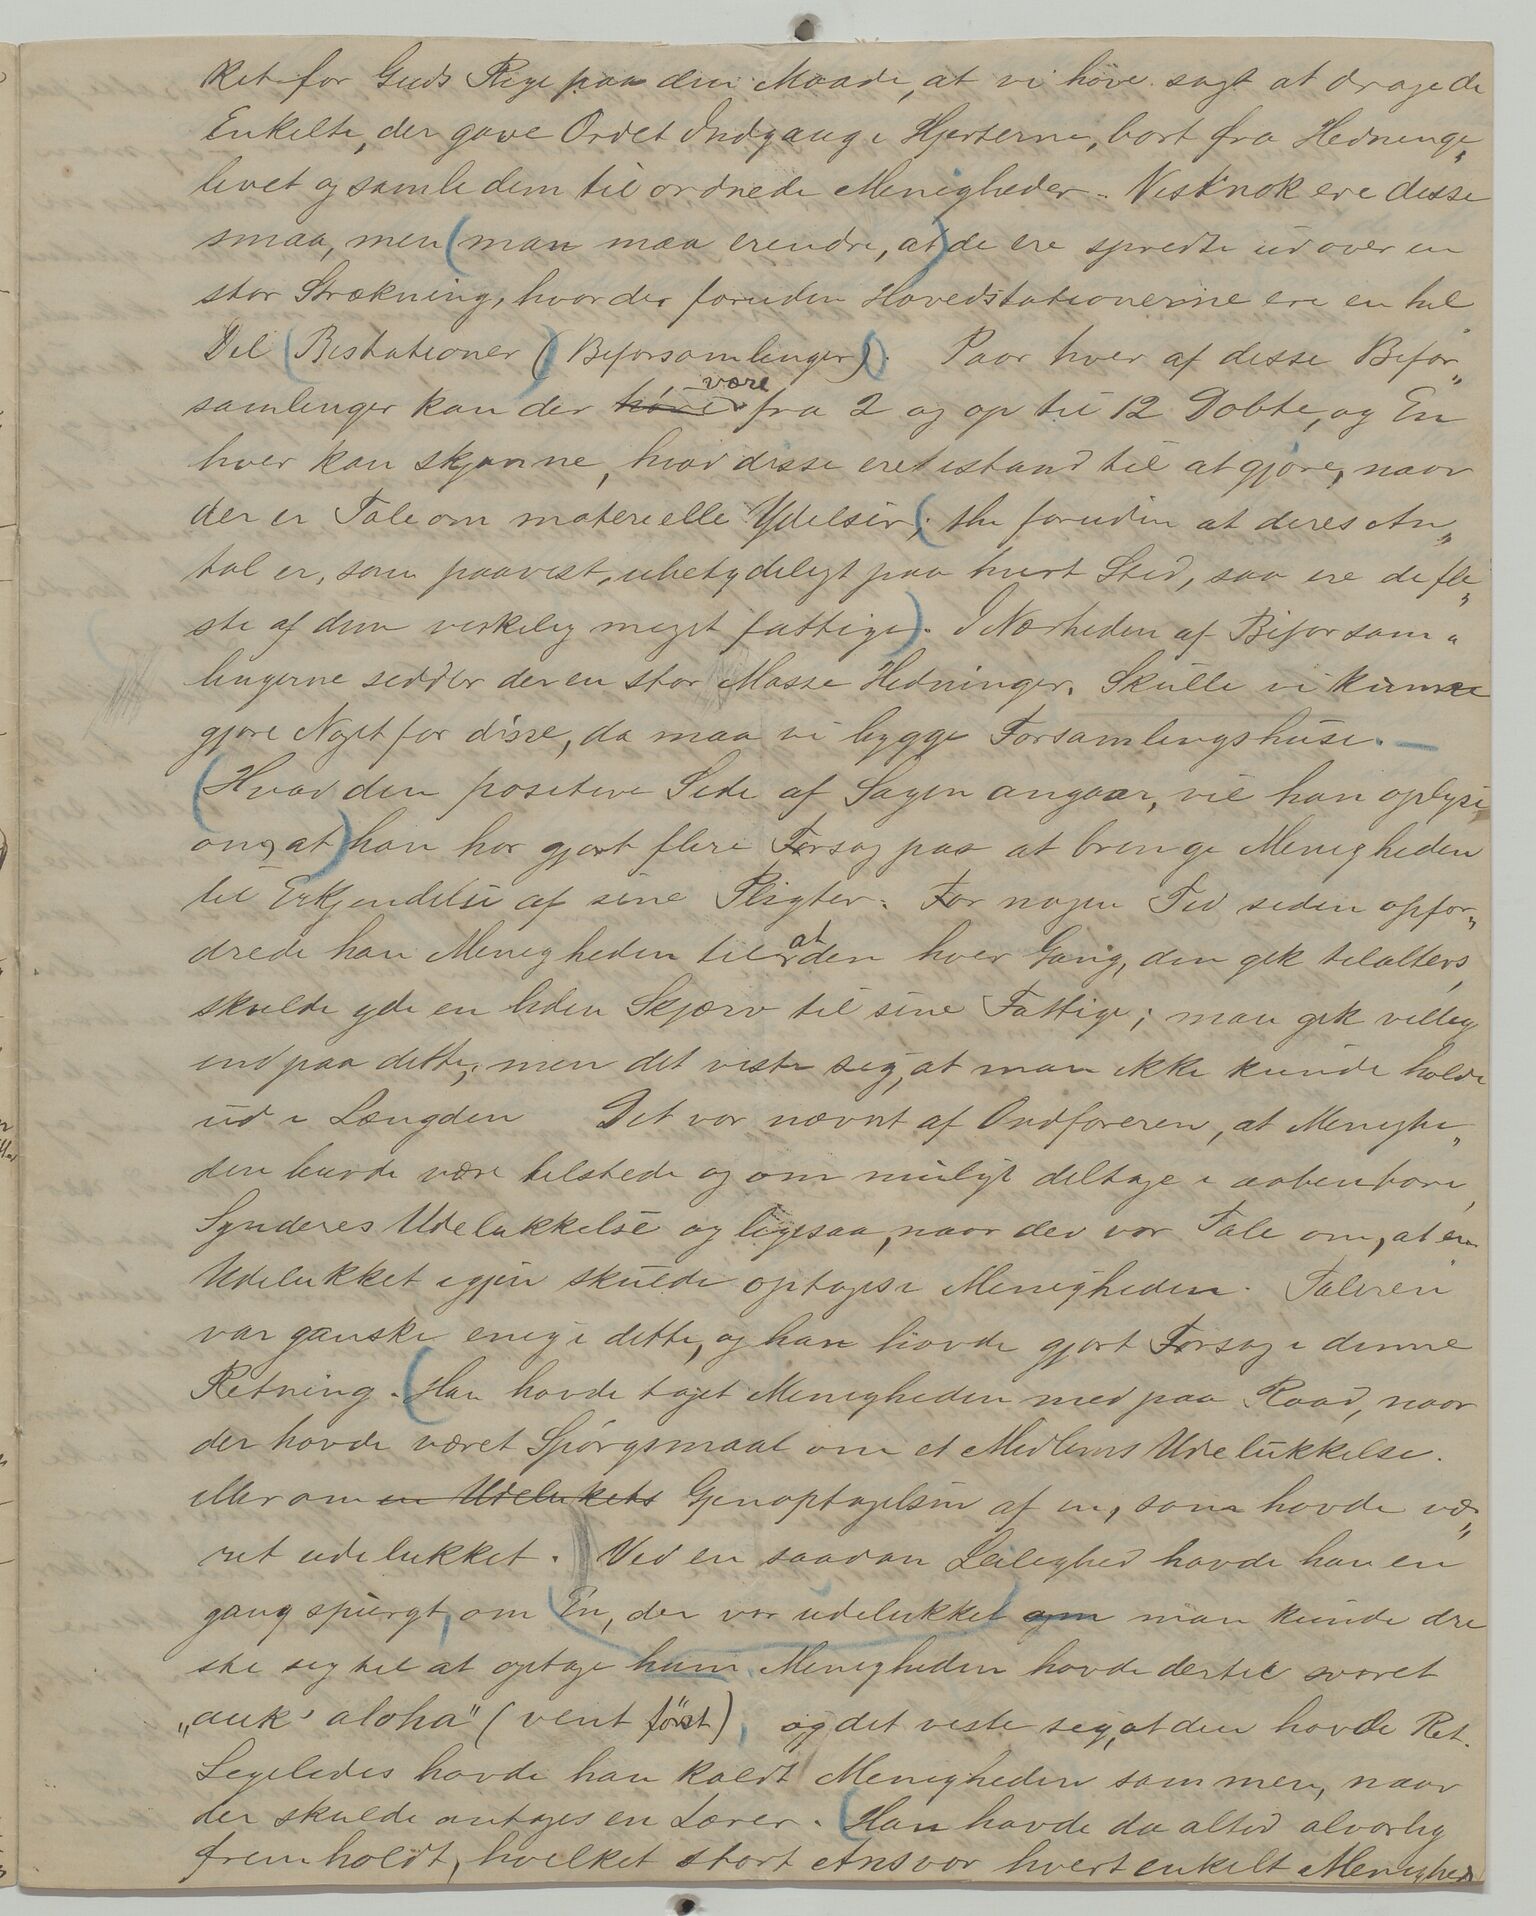 ket for Guds Rige paa den Maade, at vi have søgt at drage de
Enkelte, der gave Ordet Indgang i Hjerterne, bort fra Hedninge„
livet og samle dem til ordnede Menigheder. Vistnok ere disse
smaa, men (man maa erindre, at) de ere spredte ud over en
stor Strækning, hvor der foruden Hovedstationerne ere en hel
Del (Bistationer (Biforsamlinger)). Paa hver af disse Bifor„
samlinger kan der have være fra 2 og op til 12 Døbte, og En
hver kan skjønne, hvad disse ere istand til at gjøre, naar
der er Tale om materielle Ydelser; (thi foruden at deres An„
tal er, som paavist, ubetydeligt paa hvert Sted, saa ere de fle„
ste af dem virkelig meget fattige). I Nærheden af Biforsam„
lingerne sidder der en stor Masse Hedninger. Skulle vi kunne
gjøre Noget for disse, da maa vi bygge Forsamlingshuse. —
(Hvad den positive Side af Sagen angaar, vil han oplyse
om, at) han har gjort flere Forsøg paa at bringe Menigheden
til Erkjendelse af sine Pligter. For nogen Tid siden opfor„
drede han Menigheden til at den hver Gang, den gik tilalters,
skulde yde en liden Skjærv til sine Fattige; man gik villig
ind paa dette, men det viste sig, at man ikke kunde holde
ud i Længden Det var nævnt af Ordføreren, at Menighe„
den burde være tilstede og om muligt deltage i aabenbare
Synderes Udelukkelse og ligesaa, naar der var Tale om, at en
Udelukket igjen skulde optages i Menigheden. Taleren
var ganske enig i dette, og han havde gjort Forsøg i denne
Retning. (Han havde taget Menigheden med paa Raad, naar
der havde været Spørgsmaal om et Medlems Udelukkelse.
eller om en Udelukkets Gjenoptagelsen af en, som havde væ„
ret udelukket. Ved en saadan Leilighed havde han en
gang spurgt, om En, der var udelukket om man kunde dri
ste sig til at optage ham. Menigheden havde dertil svaret
„auk' aloha" (vent först), og det viste sig, at den havde Ret.
Ligeledes havde han kaldt Menigheden sammen, naar
der skulde antages en Lærer. (Han havde da altid alvorlig
fremholdt, hvilket stort Ansvar hvert enkelt Menighed